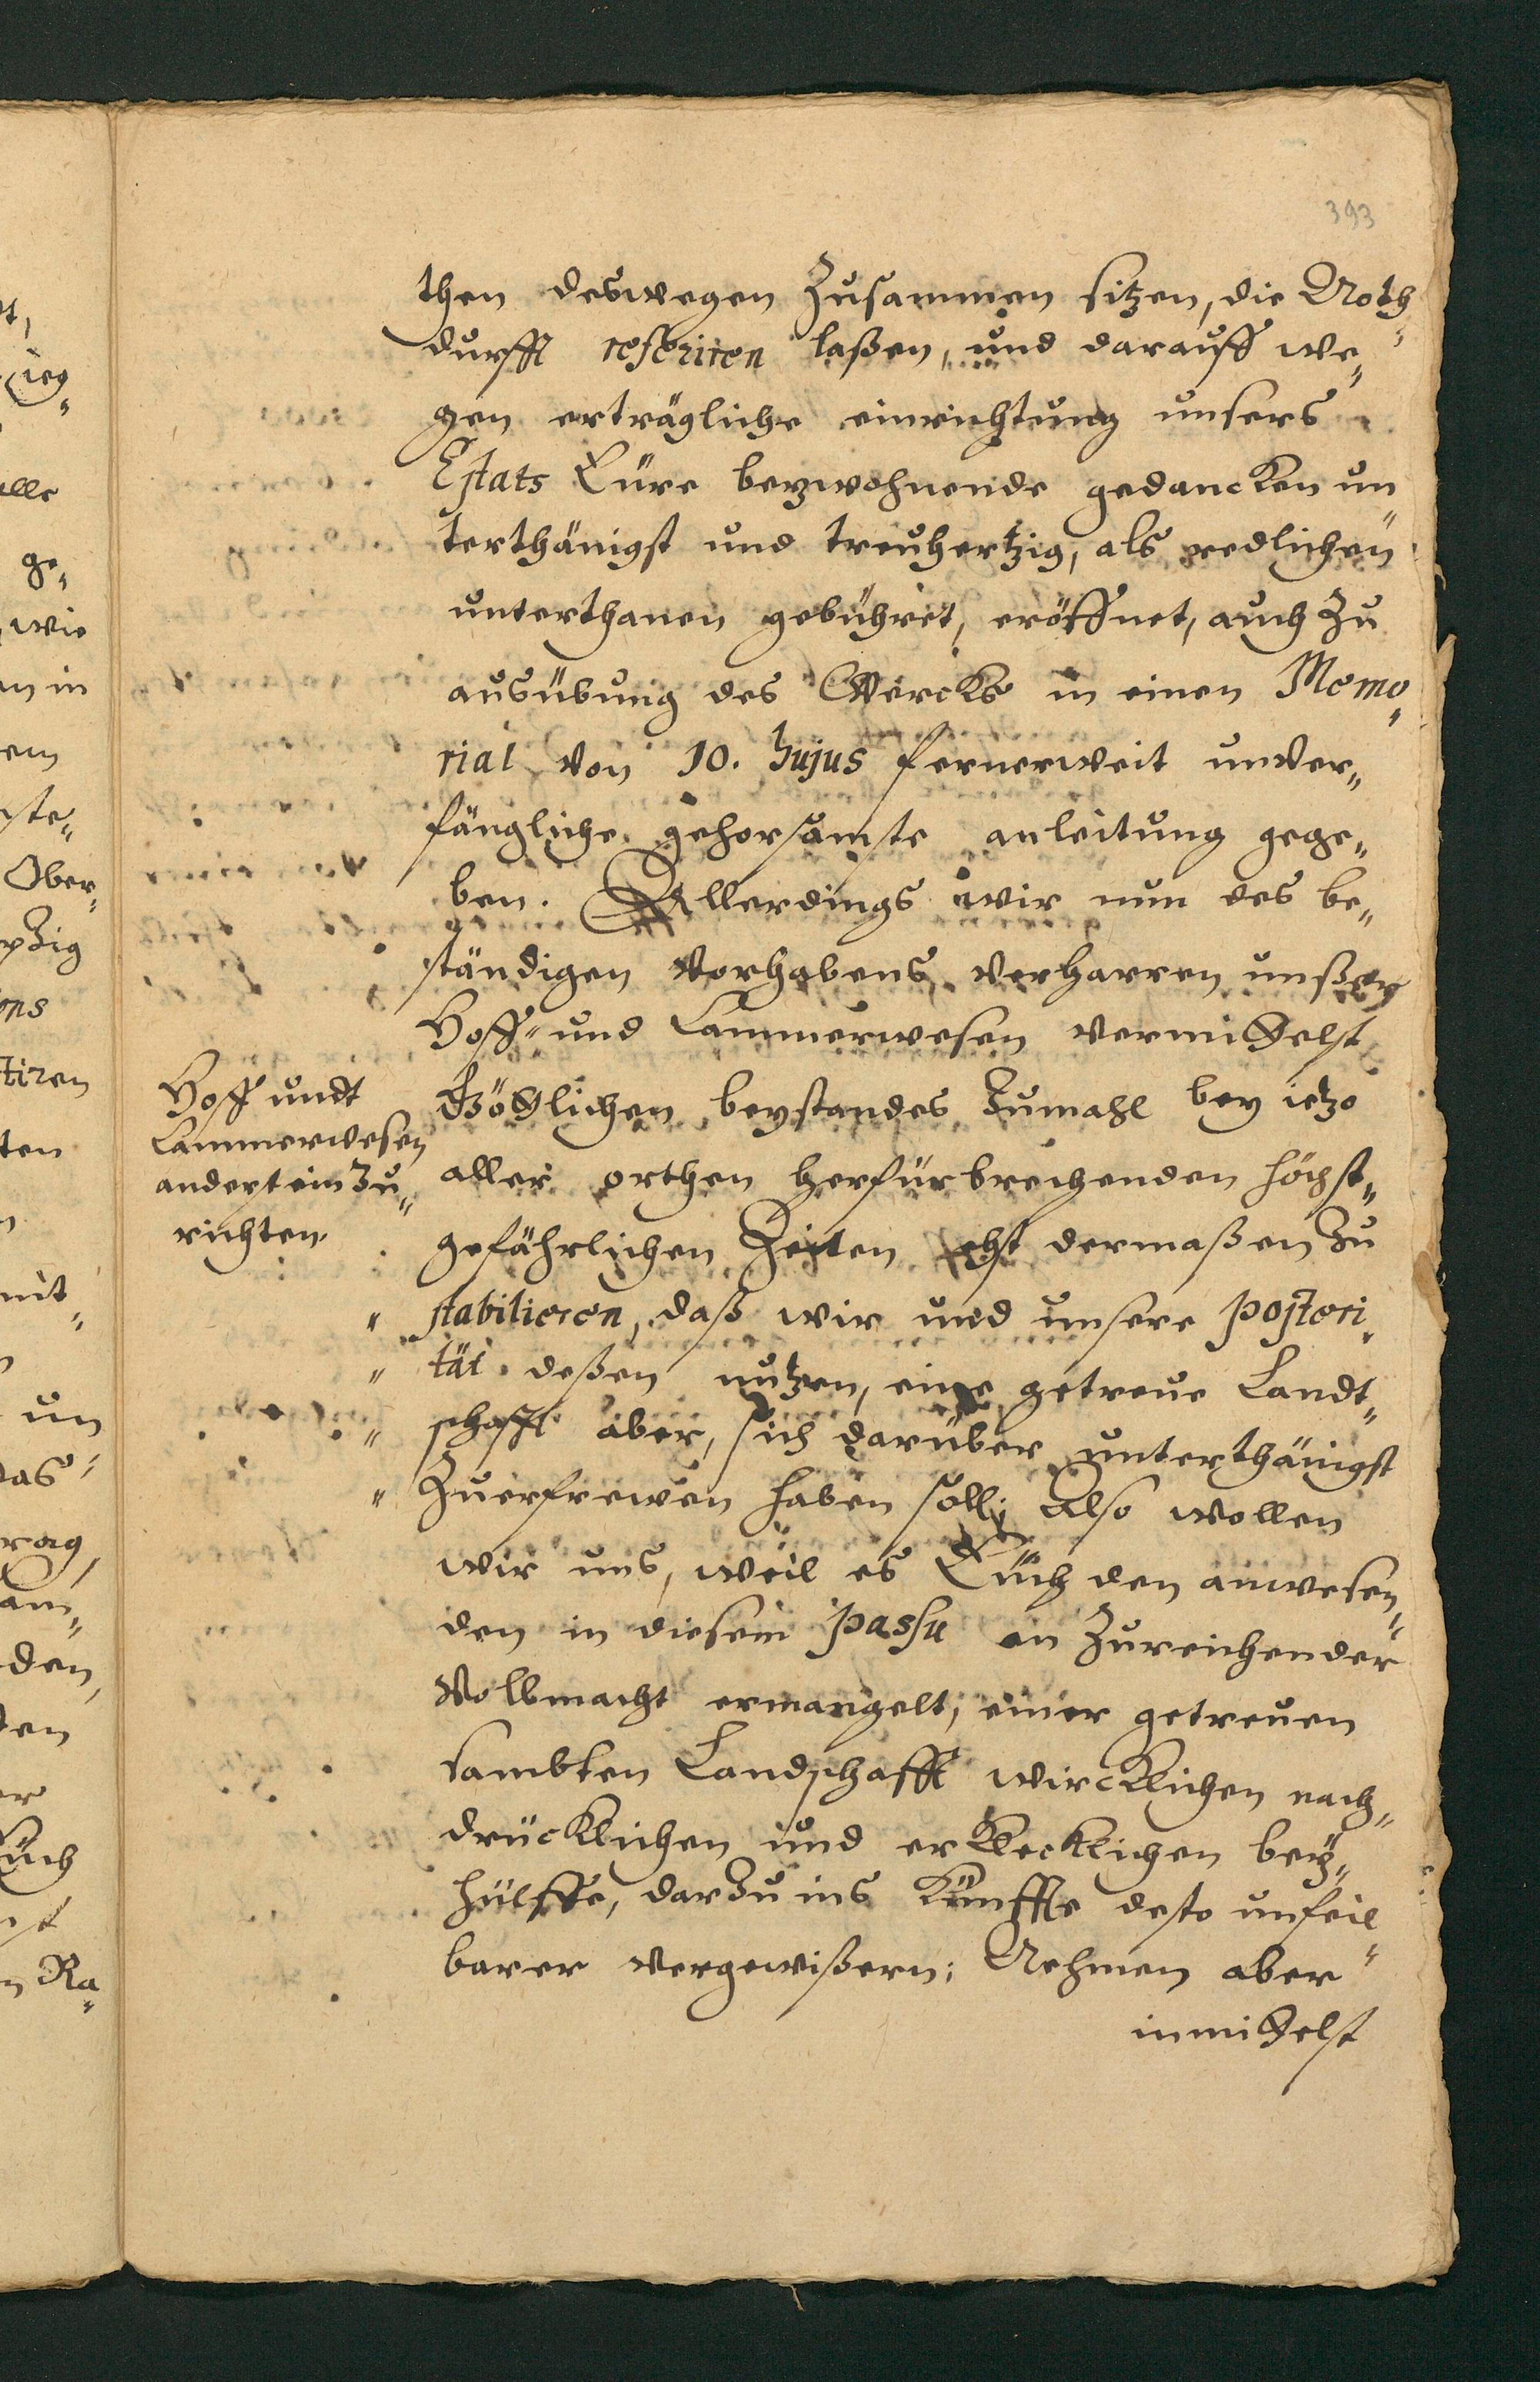 393
then deswegen Zusammen sitzen, die Noth-
durfft referiren laßen, und darauff we-
gen erträgliche einrichtung unsers
Estats Eüre beywohnende gedancken un-
terthänigst und treuhertzig, als redlichen
unterthanen gebühret, eröffnet, auch Zu
ausübung des Wercks in einen Memo-
rial von 10. hujus fernerweit unver-
fängliche gehorsamste anleitung gege-
ben. Allerdings wir nun des be-
ständigen Vorhabens verharren unßer
Hoff- und Cammerwesen vermittelst
Göttlichen beystandes Zumahl bey ietzo
aller orthen herfürbrechenden höchst-
gefährlichen Zeiten ehst dermaßen Zu
stabilieren, daß wir und unsere posteri-
tät deßen nutzen, eine getreue Landt-
schafft aber, sich darüber unterthänigst
Zuerfrewen haben soll; Also wollen
wir uns, weil es Euch den anwesen-
den in diesem passu an Zureichender
Vollmacht ermangelt, einer getreuen
sambten Landschafft wircklichen nach-
drücklichen und erklecklichen bey-
hülffe, darzu ins Künfftte desto unfeil-
barer vergewißern; Nehmen aber
inmittelst
Hoff undt
Cammerwesen
anderst ein Zu-
richten.
alle
ge-
wie
en in
Ober-
ten
den,
un
das
Ra-